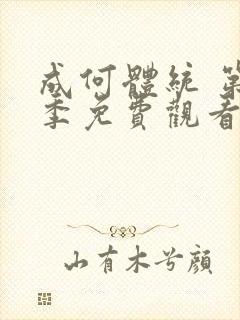 成何體統 第
季免費觀看
山有木兮顔